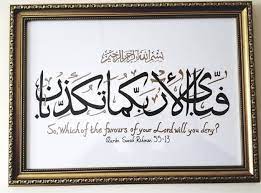 بسم الله الرحمن الرحيم
فبأي آلاء ربكما تكذبان
So, Which of the favours of your Lord will you deny?
Qurān Surah Rahman 55-13